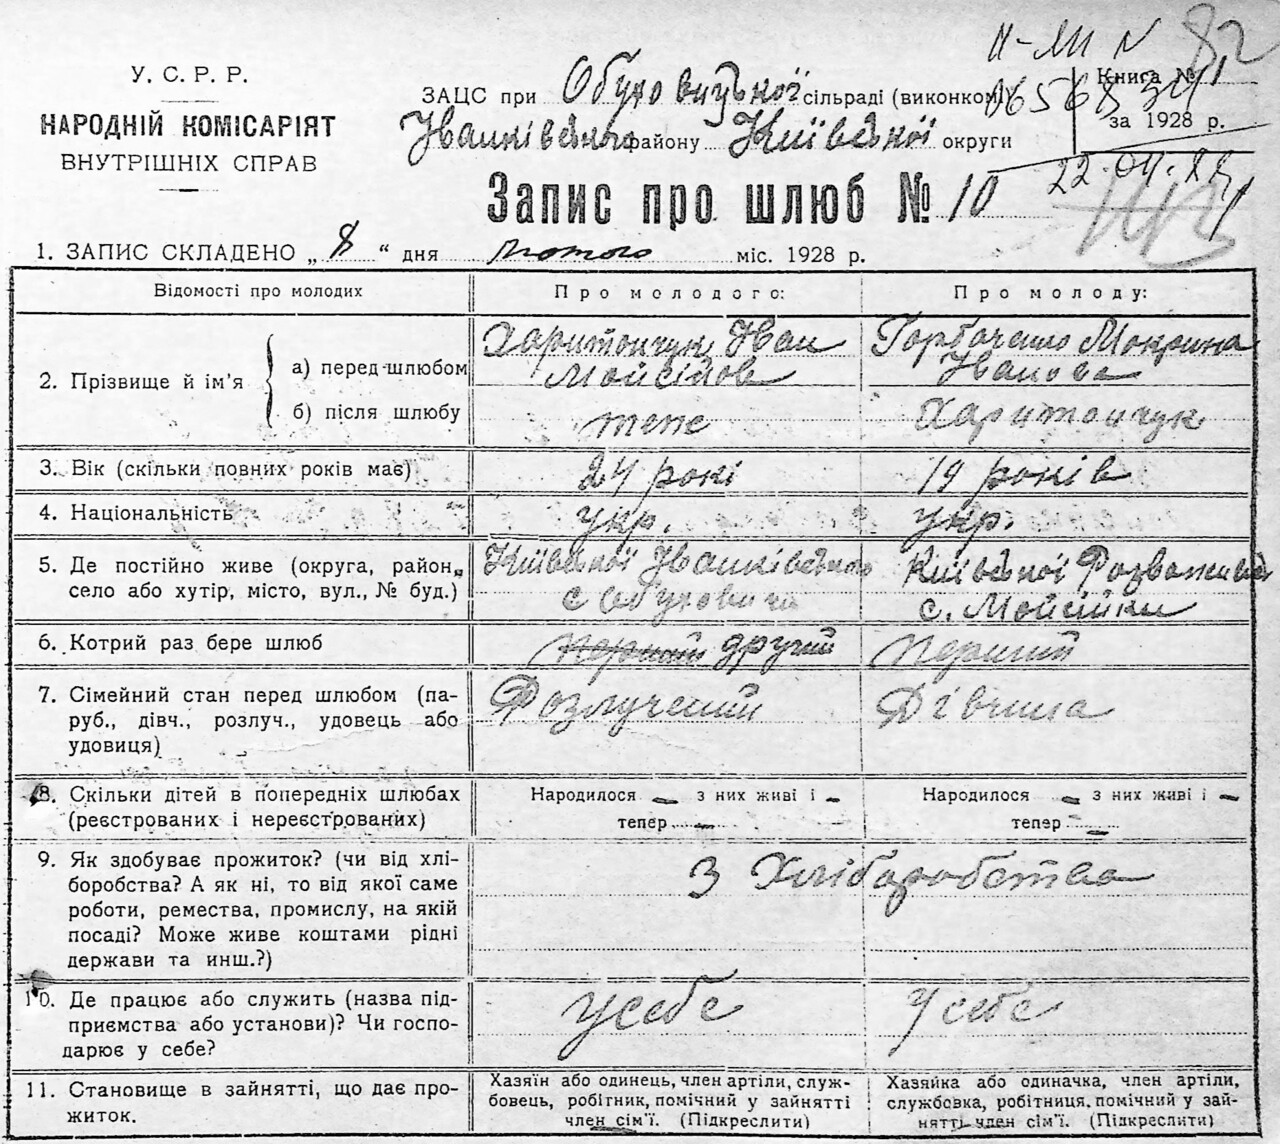 II-МИ № 82
У. С. Р. Р.
НАРОДНІЙ КОМІСАРІЯТ
ВНУТРІШНІХ СПРАВ
Книга №
за 1928 р.
22.04.
ЗАЦС при Обуховицької сільраді (виконком)
Іванківського району Київської округи
Запис про шлюб № 10
1. ЗАПИС СКЛАДЕНО „8“ дня лютого міс. 1928 р.
Відомості про молодих Про молодого: Про молоду:
2. Прізвище й ім'я
а) перед шлюбом Харитончук Іван Мойсійов Горбаченко Мокрина Іванова
б) після шлюбу теж Харитончук
3. Вік (скільки повних років має) 24 рокі 19 років
4. Національність укр. укр.
5. Де постійно живе (округа, район, Київської Іванківського Київської Розважівськ
село або хутір, місто, вул., № буд.) с Обуховичі с. Мойсійки
6. Котрий раз бере шлюб перший другий Перший
7. Сімейний стан перед шлюбом (па- Розлучений Дівчина
руб., дівч., розлуч., удовець або
удовиця)
8. Скільки дітей в попередніх шлюбах Народилося — з них живі і — Народилося — з них живі і —
(реєстрованих і нереєстрованих) тепер — тепер —
9. Як здобуває прожиток? (чи від хлі- З Хліборобства
боробства? А як ні, то від якої саме
роботи, ремества, промислу, на якій
посаді? Може живе коштами рідні
держави та инш.?)
10. Де працює або служить (назва під- У себе У себе
приємства або установи)? Чи госпо-
дарює у себе?
11. Становище в зайнятті, що дає про- Хазяїн або одинець, член артіли, служ- Хазяйка або одиначка, член артіли,
житок. бовець, робітник, помічний у зайнятті службовка, робітниця, помічний у зай-
член сім'ї. (Підкреслити) нятті член сім'ї. (Підкреслити)